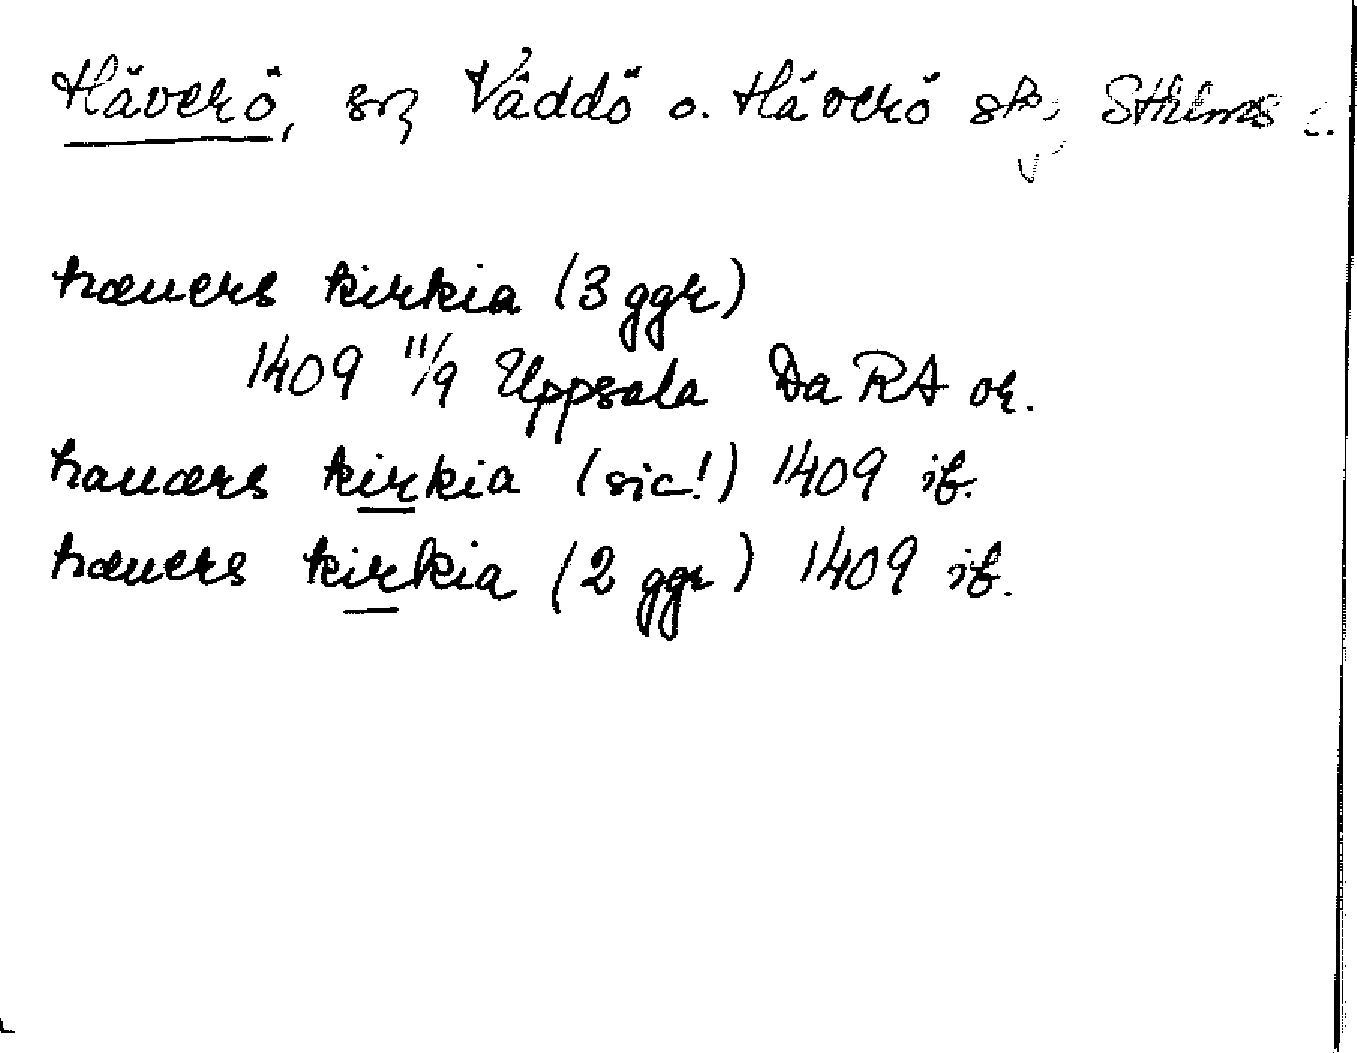 Häverö, sn, Väddö o. Häverö skg Sthlms l.
hæuers kirkia (3 ggr)
1409 11/9 Uppsala Da RA or.
hauærs kirkia (sic!) 1409 ib.
hæuers kirkia (2 ggr) 1409 ib.